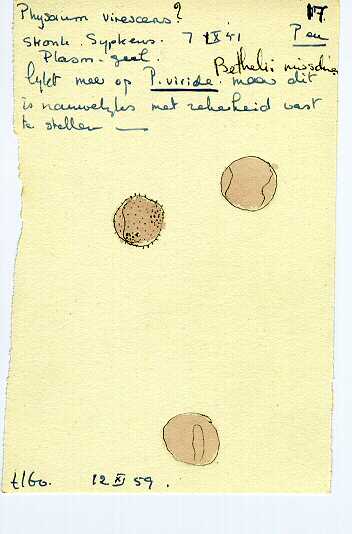 Physarum virescens? 17
stronk. Sypkens. 7 IX 41 P en
Plasm. geel. Bethelii misschien
lijkt meer op P. viride maar dit
is nauwelijks met zekerheid vast
te stellen —
12 XI 59.